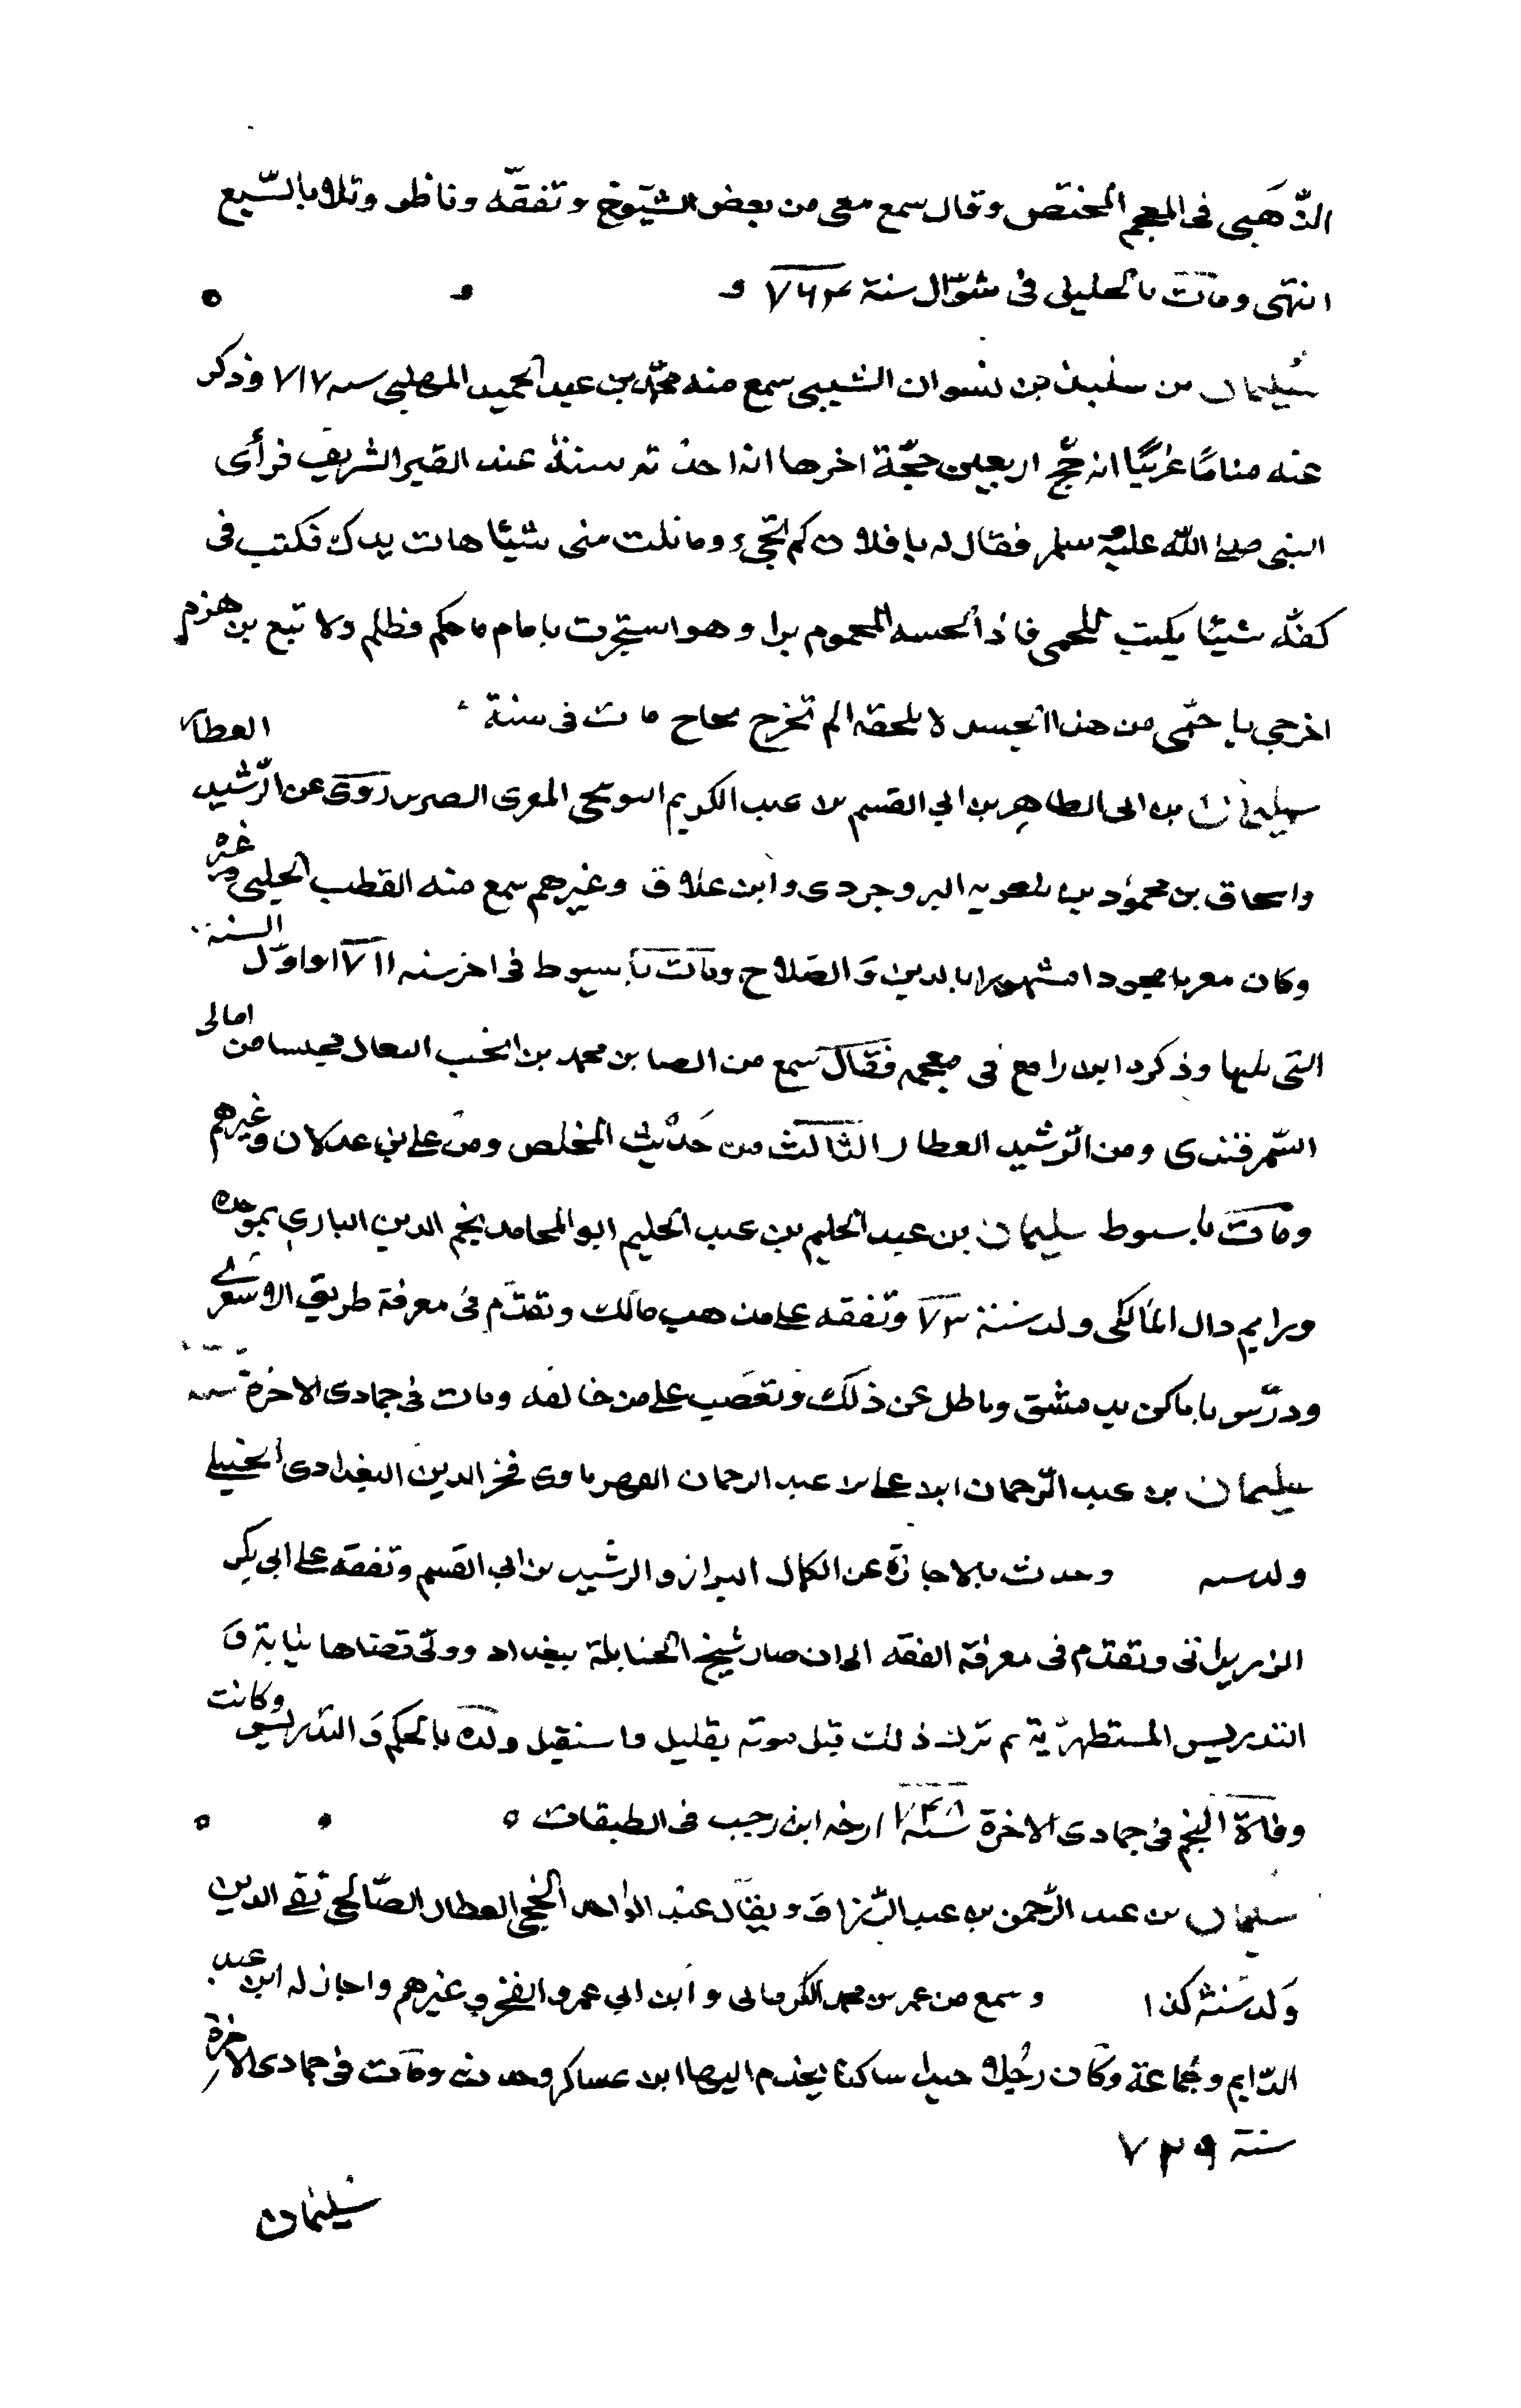 الذّهَبي في المعجم المختصّ وقال سمع معي من بعض الشيوخ وتفقّه وناظر وتلا بالسّبع
انتهى ومات بالخليل في شوّال سنة ٧٦٤
سُليمان بن سنبل بن نسوان الشيبي سمع منه محمّد بن عبد الحميد المهلبي سنه ٧١٧ وذكر
عنه منامًا غريبًا انه حجّ اربعين حجّة اخرها انه اخذ ته سنة عند القبر الشريف فرأى
النبي صلى الله عليه وسلم فقال له يا فلان كم تجيء وما نلت مني شيئا هات يدك فكتب في
كفه شيئا يكتب للحمى فاذا لحسه المحموم برا وهو استجرت بامام ما حكم فظلم ولا تبع بن هزم
اخرجي يا حمّى من هذا الجسد لا يلحقه الم تخرج مات في سنة
سليمان بن ابي الطاهر بن ابي القسم بن عبد الكريم المقرى الضرير روى عن الرّشيد العطار
واسحاق بن محمود بن البروجردي وابن علاق وغيرهم سمع منه القطب الحلبي وغيره
وكان مقريا مجودا مشهورا بالدين وَالصّلاح ومات باسيوط في اخر سنه ٧١١ او اوّل السنة
التي يليها وذكره ابن رافع في معجمه فقال سمع من محمد بن انجب النعال مجلسا من امالي
السّمرقندي ومن الرّشيد العطار الثالث من حَديث المخلص ومن علي بن عدلان وغيرهم
ومات باسيوط سليمان بن عبد الحكيم بن عبد الحليم ابو المحامد نجم الدين الباردي بموحده
ورايم دال المالكي ولد سنة ٧٣ وتفقه على مذهب مالك وتقدّم في معرفة طريق الاشعرى
ودرّس باماكن بدمشق وناظل عن ذلك وتعصّب على من خالفه ومات في جمادى الاخرة سنه
سليمان بن عبد الرّحمان ابن علي بن عبد الرحمان النهرماوي فخر الدين البغدادي الحنبلي
ولد سنه وحدث بالاجازة عن الكمال البزاز والرشيد بن ابي القسم وتفقه على ابي بكر
الزريراني وتقدّم في معرفة الفقه الى ان صار شيخ الحنابلة ببغداد وولي قضاها نيابة وَ
التدريس المستنصرّية ثم ترك ذلك قبل موته بقليل واستقبل ولده بالحكم وَالتدريس وكانت
وفاة النجم في جمادى الاخرة سنة ٧٤٨ ارخه ابن رجب في الطبقات
سليمان بن عبد الرّحمن بن عبد الرّزاق ويقال عبد الواحد العطار الصّالحي تقي الدين
وَلد سنة كذا وسمع من عمر بن محمد الكرماني وابن ابي عمر والفخر وغيرهم واجاز له ابن عبد
الدّايم وجماعة وكان رُجلا جيدا ساكنا يخدم ابن عساكر وحدث ومات في جمادى الاخرة
سنة ٧٢٩
سليمان